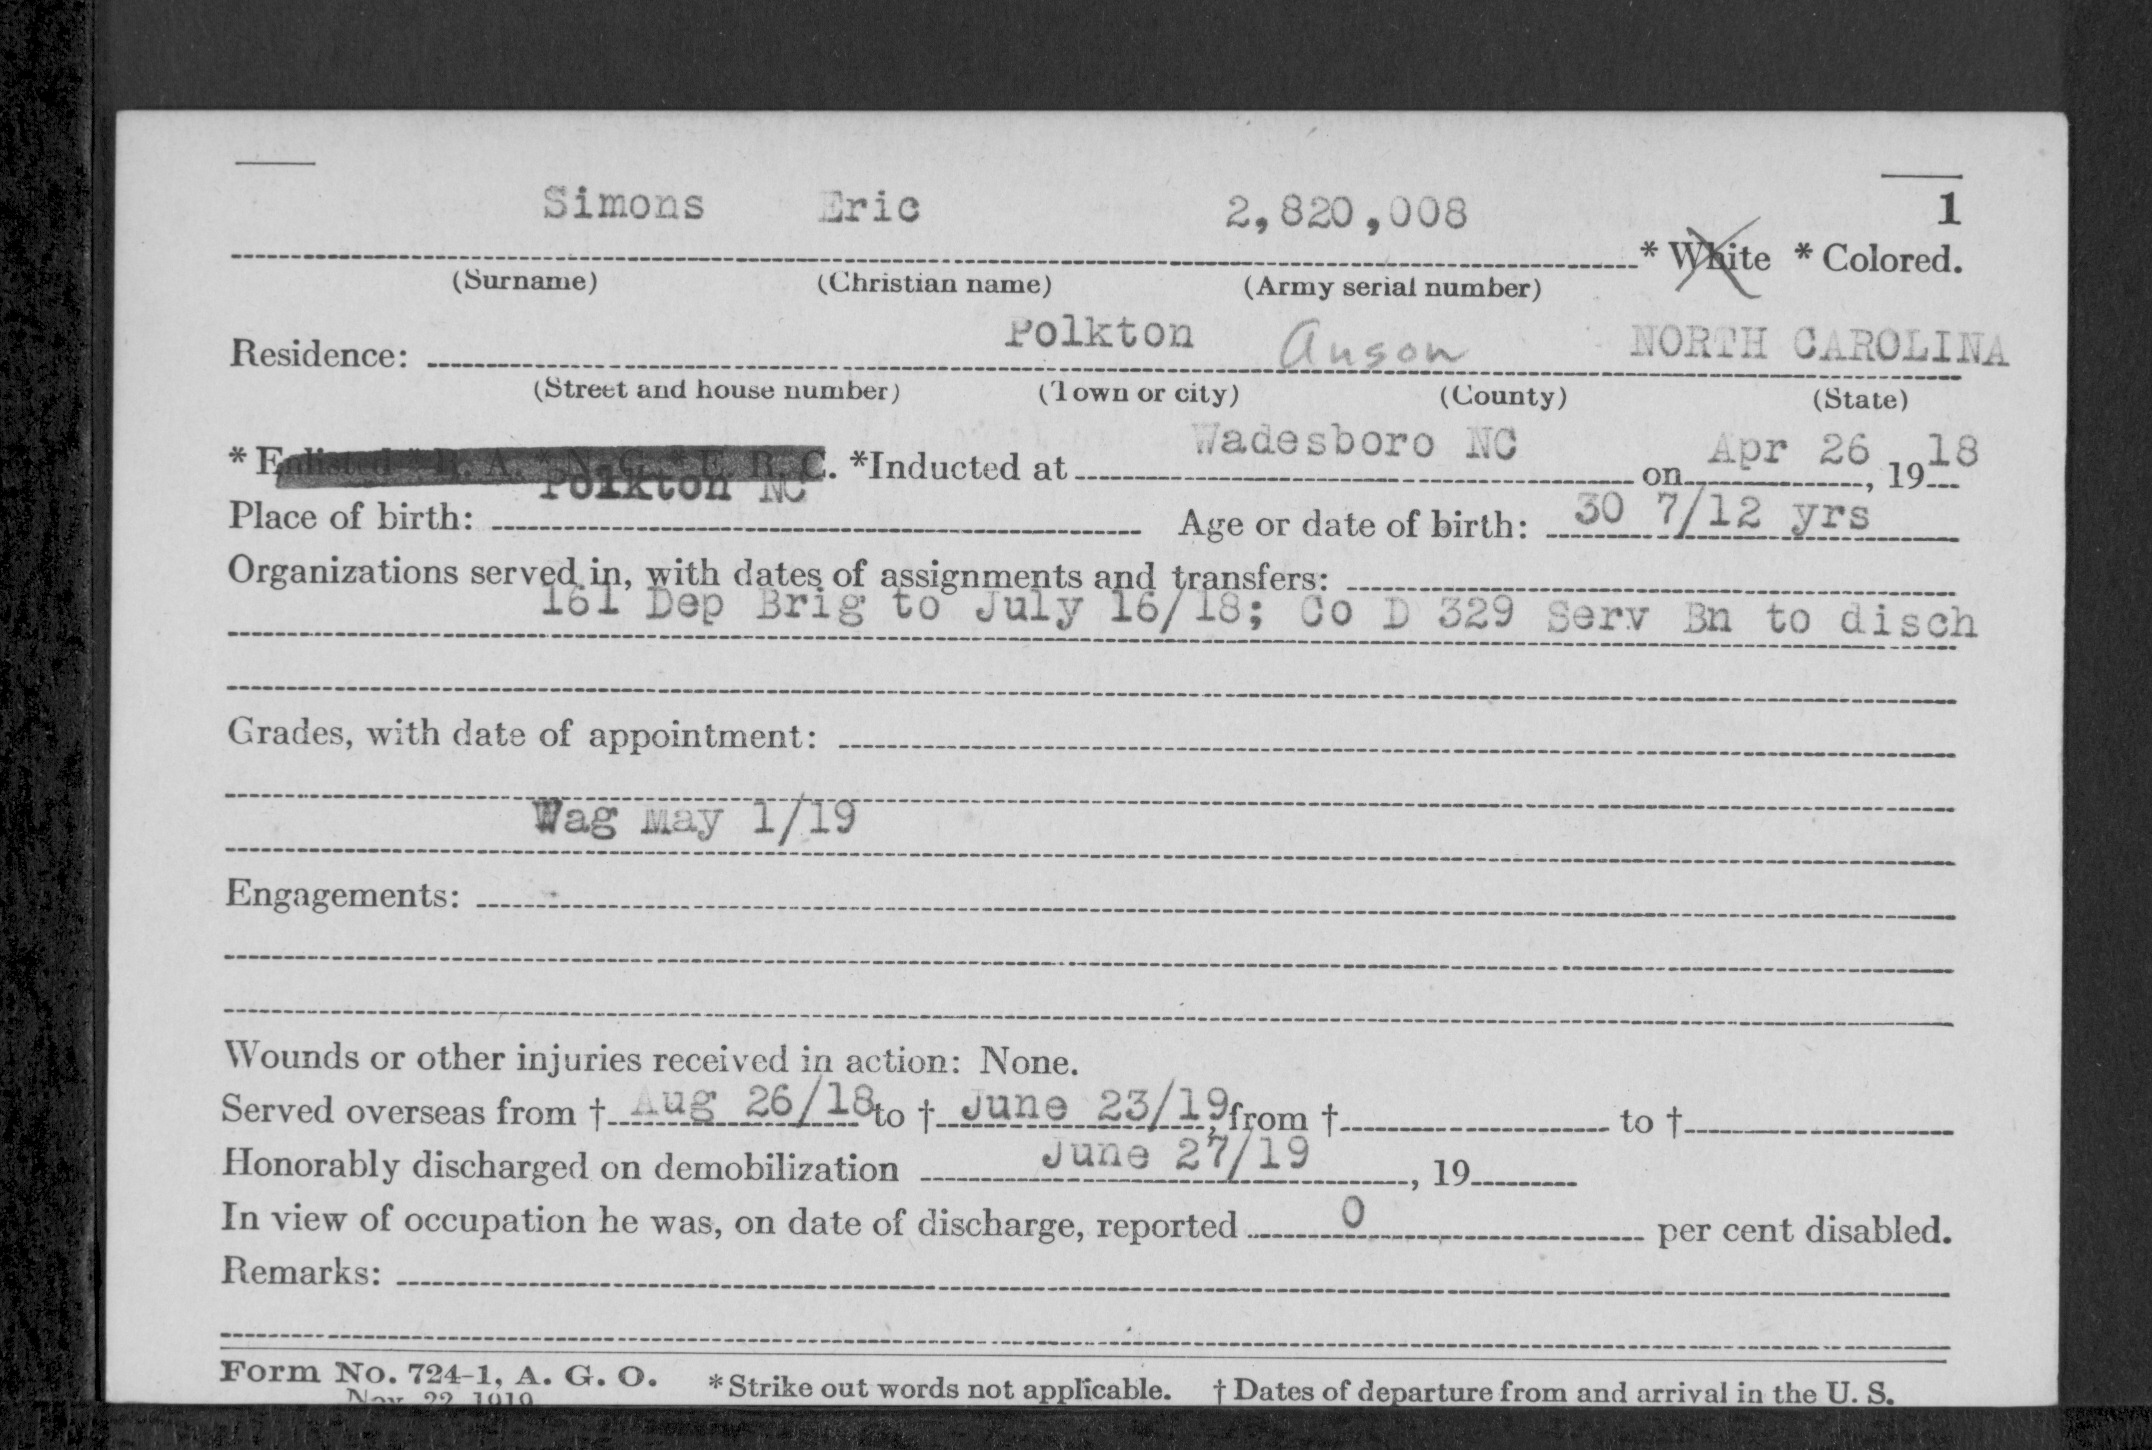 Simons Eric 2,820,008 1
* White * Colored.
(Surname) (Christian name) (Army serial number)
Residence: Polkton Anson NORTH CAROLINA
(Street and house number) (Town or city) (County) (State)
* Enlisted * R. A. * N. G. * E. R. C. *Inducted at Wadesboro NC on Apr 26, 1918
Place of birth: Polkton NC Age or date of birth: 30 7/12 yrs
Organizations served in, with dates of assignments and transfers:
161 Dep Brig to July 16/18; Co D 329 Serv Bn to disch
Grades, with date of appointment:
Wag May 1/19
Engagements:
Wounds or other injuries received in action: None.
Served overseas from † Aug 26/18 to † June 23/19, from † to †
Honorably discharged on demobilization June 27/19, 19
In view of occupation he was, on date of discharge, reported 0 per cent disabled.
Remarks:
Form No. 724-1, A. G. O. * Strike out words not applicable. † Dates of departure from and arrival in the U. S.
Nov. 22, 1919